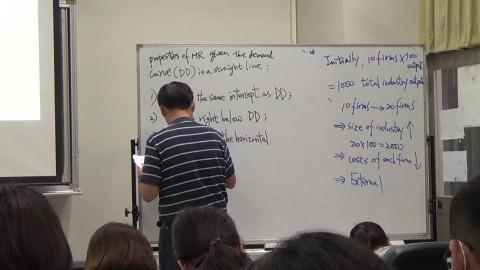 properties of MR given the demand
curve (DD) is a straight line:
1) the same intercept as DD;
2) right below DD;
the horizontal
Initially, 10 firms × 100
output
= 1000 total industry output
10 firms → 20 firms
⇒ size of industry ↑
20 × 100 = 2000
⇒ costs of each firm ↓
⇒ External